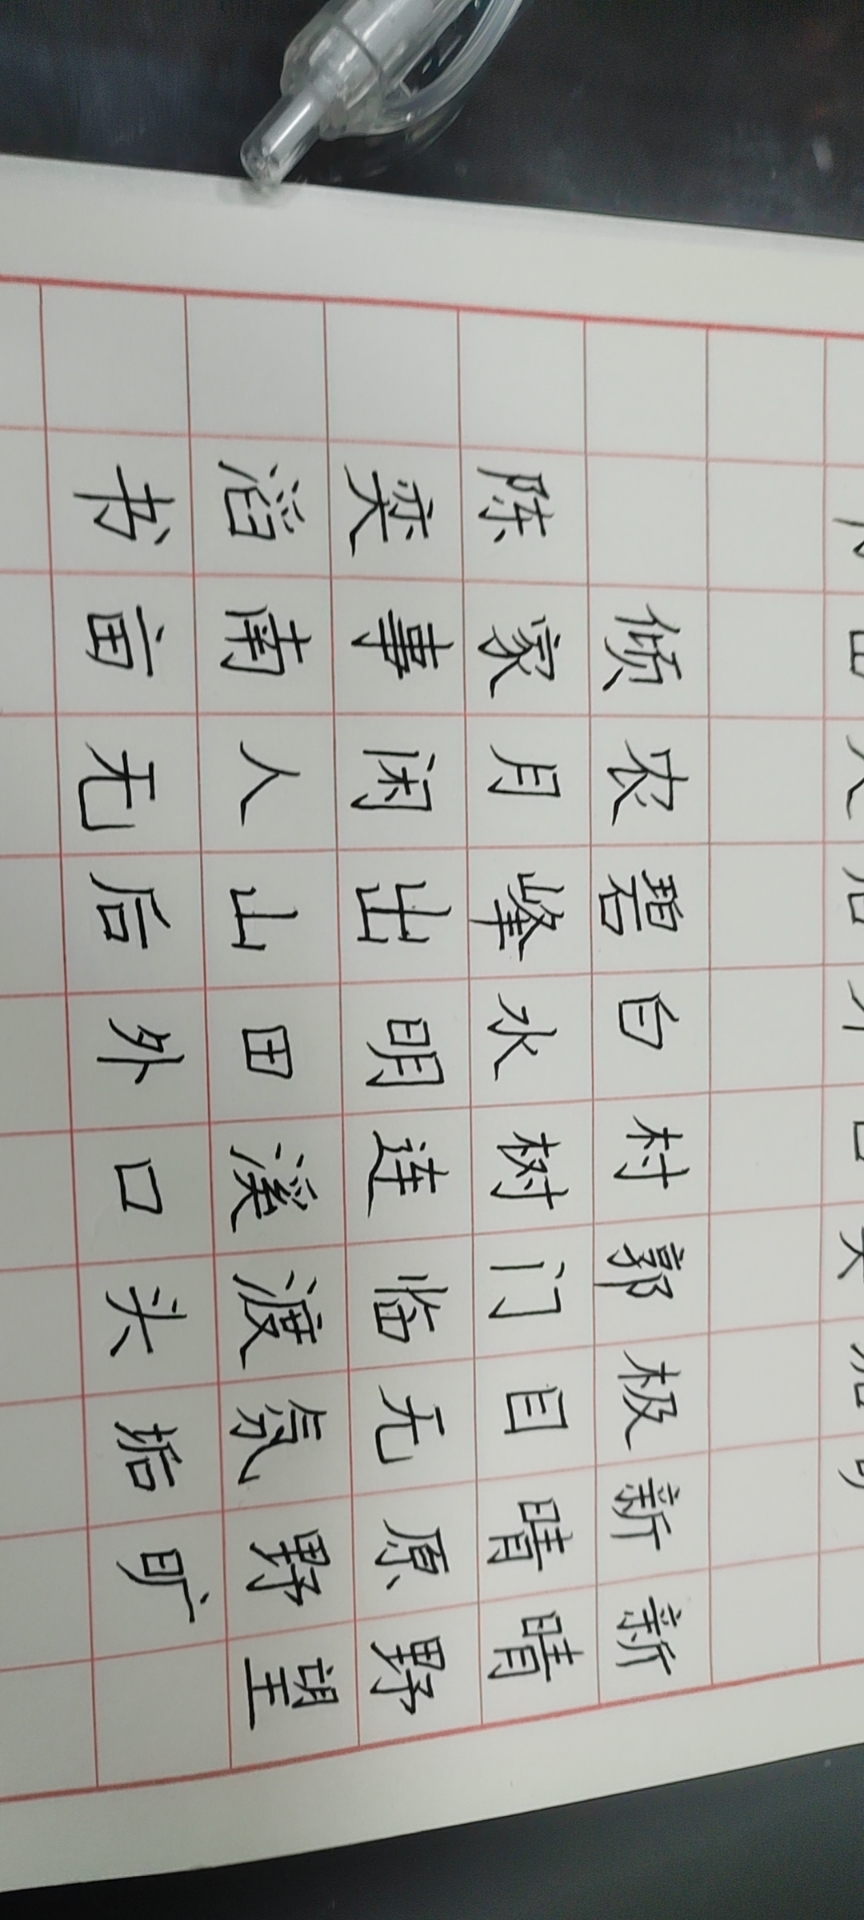 新晴野望
新晴原野旷
极目无氛垢
郭门临渡头
村树连溪口
白水明田外
碧峰出山后
农月闲人无
倾家事南亩
陈奕滔书